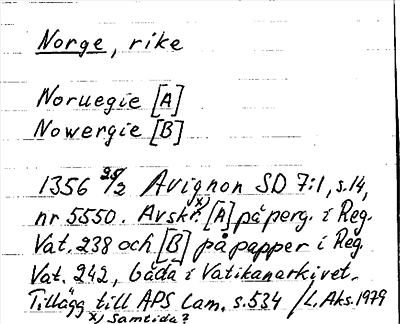 Norge, rike
Noruegie [A]
Nowergie [B]
1356 29/2 Avignon SD 7:1, s.14,
nr 5550. Avskr. x) [A] på perg. i Reg.
Vat. 238 och [B] på papper i Reg.
Vat. 242, båda i Vatikanarkivet.
Tillägg till APS Cam. s.534 / L. Aks. 1979
x) Samtida?